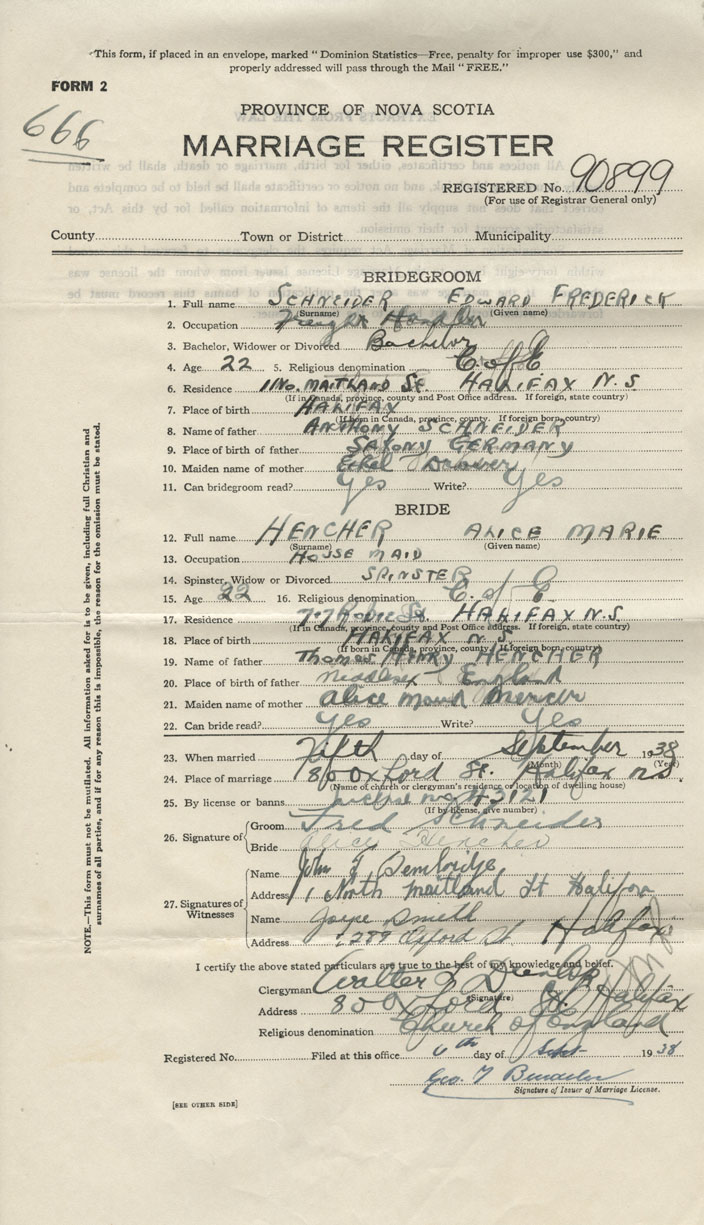 This form, if placed in an envelope, marked "Dominion Statistics—Free, penalty for improper use $300," and
properly addressed will pass through the Mail "FREE."
FORM 2
666
PROVINCE OF NOVA SCOTIA
MARRIAGE REGISTER
REGISTERED No. 90899
(For use of Registrar General only)
County Town or District Municipality
BRIDEGROOM
1. Full name SCHNEIDER EDWARD FREDERICK
(Surname) (Given name)
2. Occupation Freight Handler
3. Bachelor, Widower or Divorced Bachelor
4. Age 22 5. Religious denomination C. of E
6. Residence 1 NO. MAITLAND St. HALIFAX N.S
(If in Canada, province, county and Post Office address. If foreign, state country)
7. Place of birth HALIFAX
(If born in Canada, province, county. If foreign born, country)
8. Name of father ANTHONY SCHNEIDER
9. Place of birth of father SAXONY GERMANY
10. Maiden name of mother Ethel
11. Can bridegroom read? Yes Write? Yes
BRIDE
12. Full name HENCHER ALICE MARIE
(Surname) (Given name)
13. Occupation HOUSE MAID
14. Spinster, Widow or Divorced SPINSTER
15. Age 22 16. Religious denomination C. of E
17. Residence St. HALIFAX N.S.
(If in Canada, province, county and Post Office address. If foreign, state country)
18. Place of birth HALIFAX N.S.
(If born in Canada, province, county. If foreign born, country)
19. Name of father Thomas Henry HENCHER
20. Place of birth of father Middlesex - England
21. Maiden name of mother Alice Maud Mercer
22. Can bride read? Yes Write? Yes
23. When married Fifth day of September 1938
(Month) (Year)
24. Place of marriage 80 Oxford St. Halifax N.S.
(Name of church or clergyman's residence or location of dwelling house)
25. By license or banns License no. 42121
(If by license, give number)
26. Signature of Groom Fred Schneider
Bride Alice Hencher
27. Signatures of Witnesses
Name John
Address 1 North Maitland St Halifax
Name Joyce Smith
Address 289 Oxford St. Halifax
I certify the above stated particulars are true to the best of my knowledge and belief.
Clergyman Walter
(Signature)
Address 80 Oxford St. Halifax
Religious denomination Church of England
Registered No. Filed at this office 6th day of Sept 1938
Geo. T
Signature of Issuer of Marriage License.
[SEE OTHER SIDE]
NOTE.—This form must not be mutilated. All information asked for is to be given, including full Christian and
surnames of all parties, and if for any reason this is impossible, the reason for the omission must be stated.